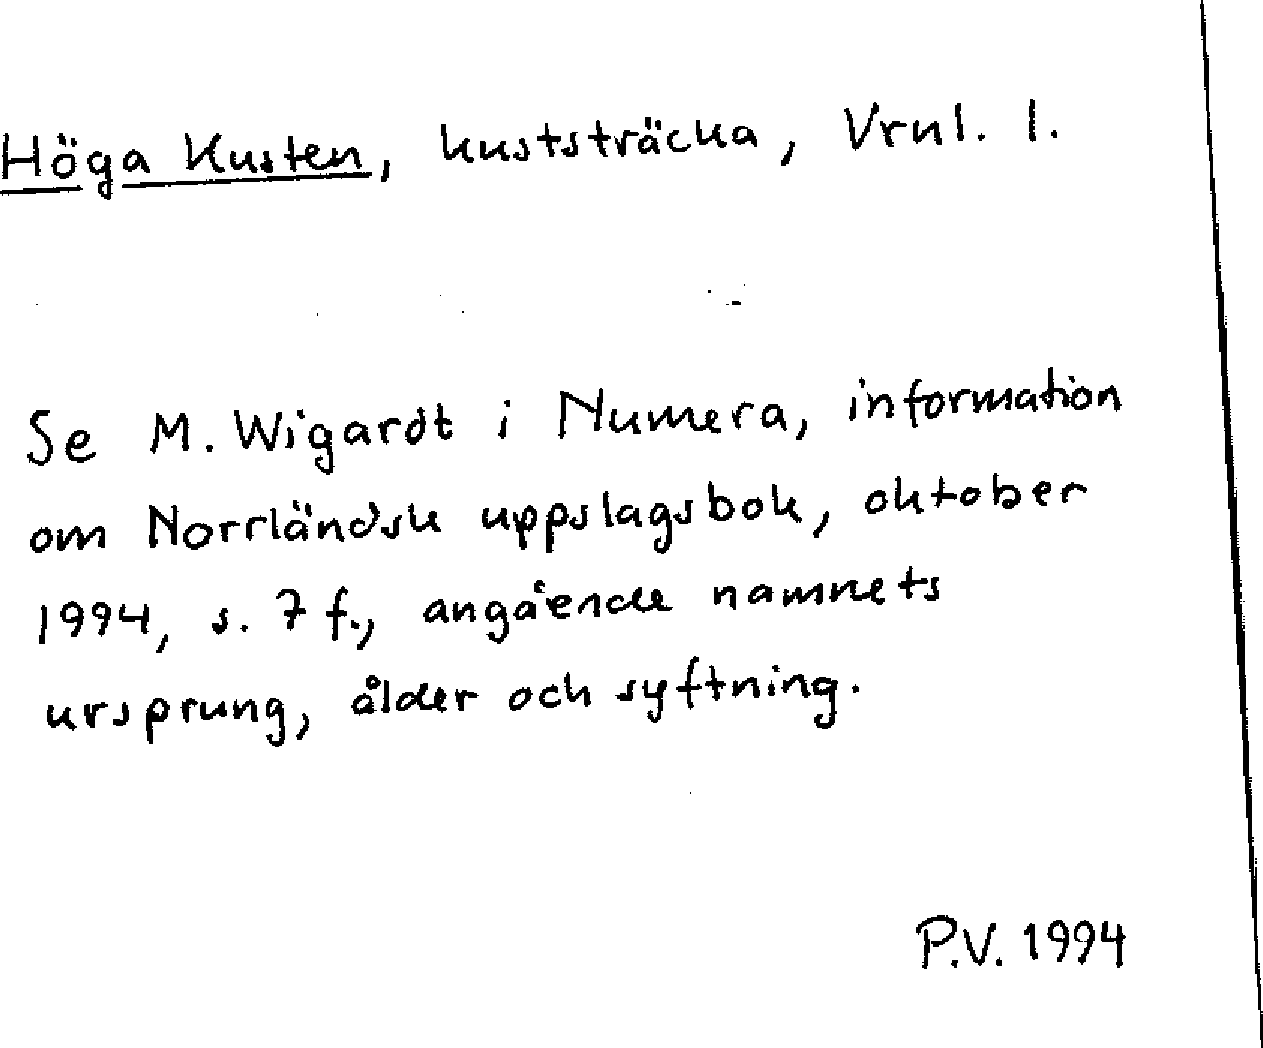 Höga Kusten, kuststräcka, Vrnl. l.
Se M. Wigardt i Numera, information
om Norrländsk uppslagsbok, oktober
1994, s. 7 f., angående namnets
ursprung, ålder och syftning.
P.V. 1994